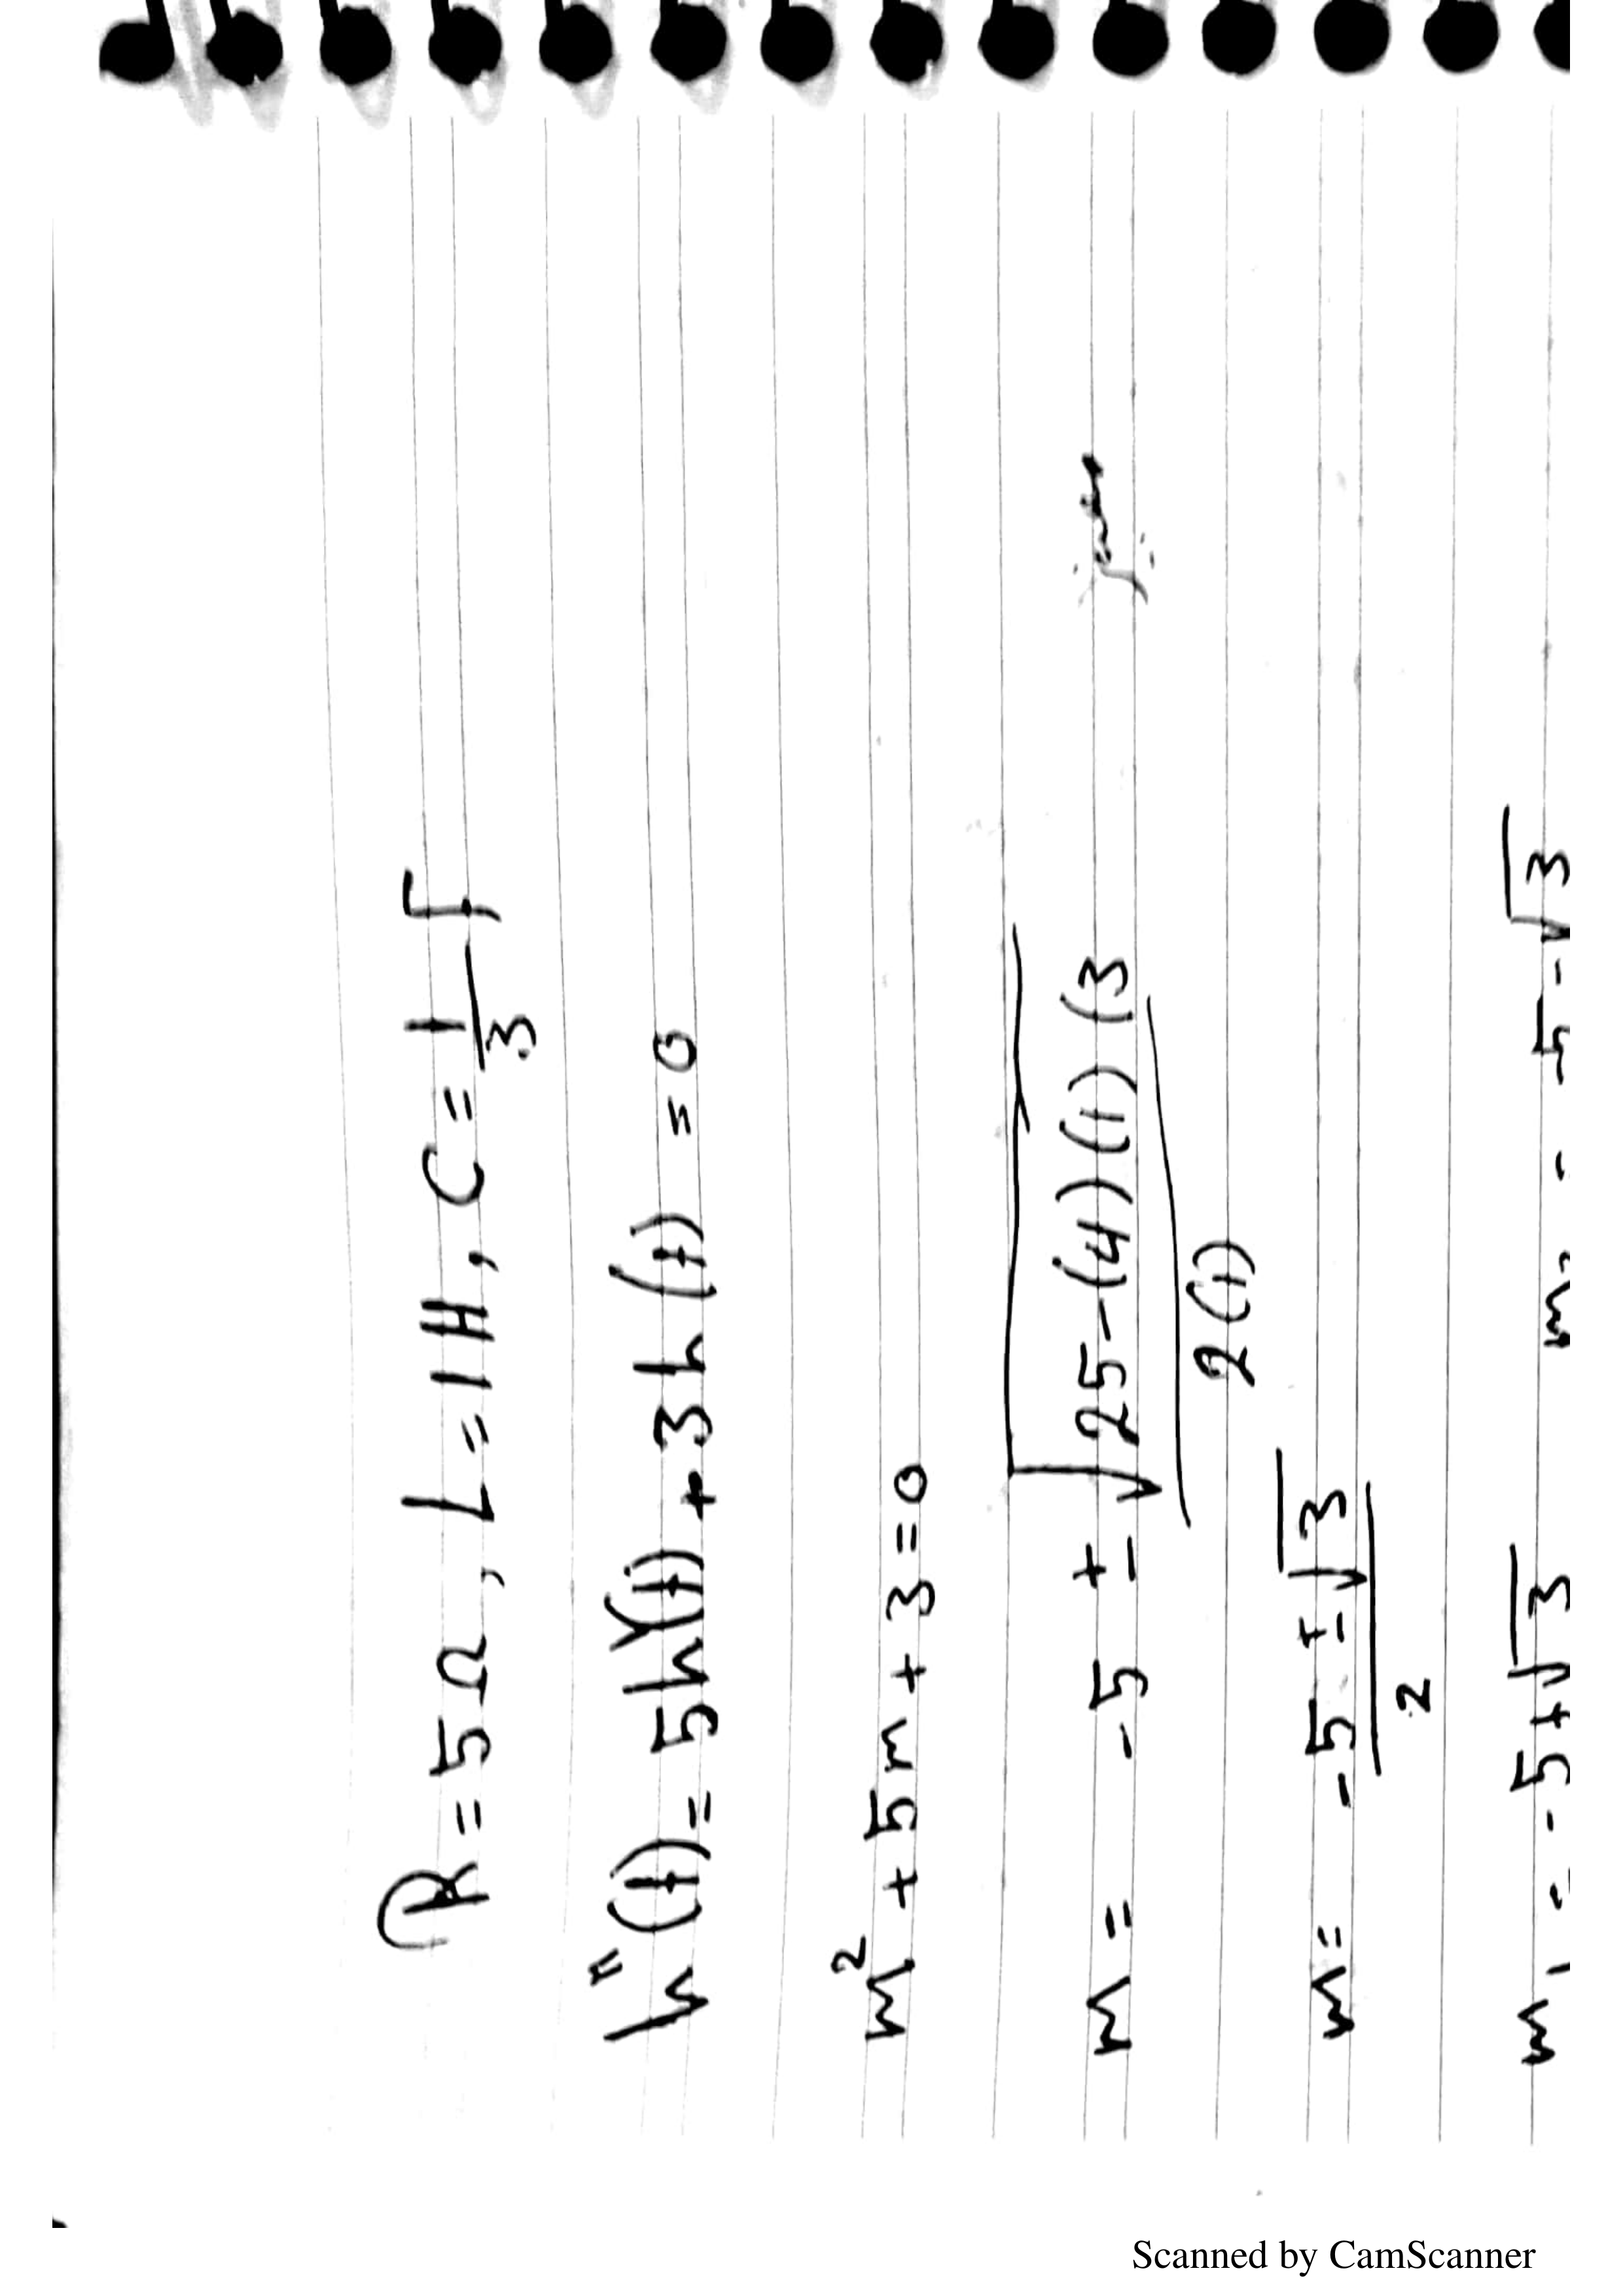 R = 5Ω, L = 1H, C = 1/3 F
h"(t) = 5h'(t) + 3h(t) = 0
m² + 5m + 3 = 0
m = -5 ± √25-(4)(1)(3 / 2(1)
m = -5 ± √3 / 2
m₁ = -5+√3 m₂ = -5-√3
Scanned by CamScanner